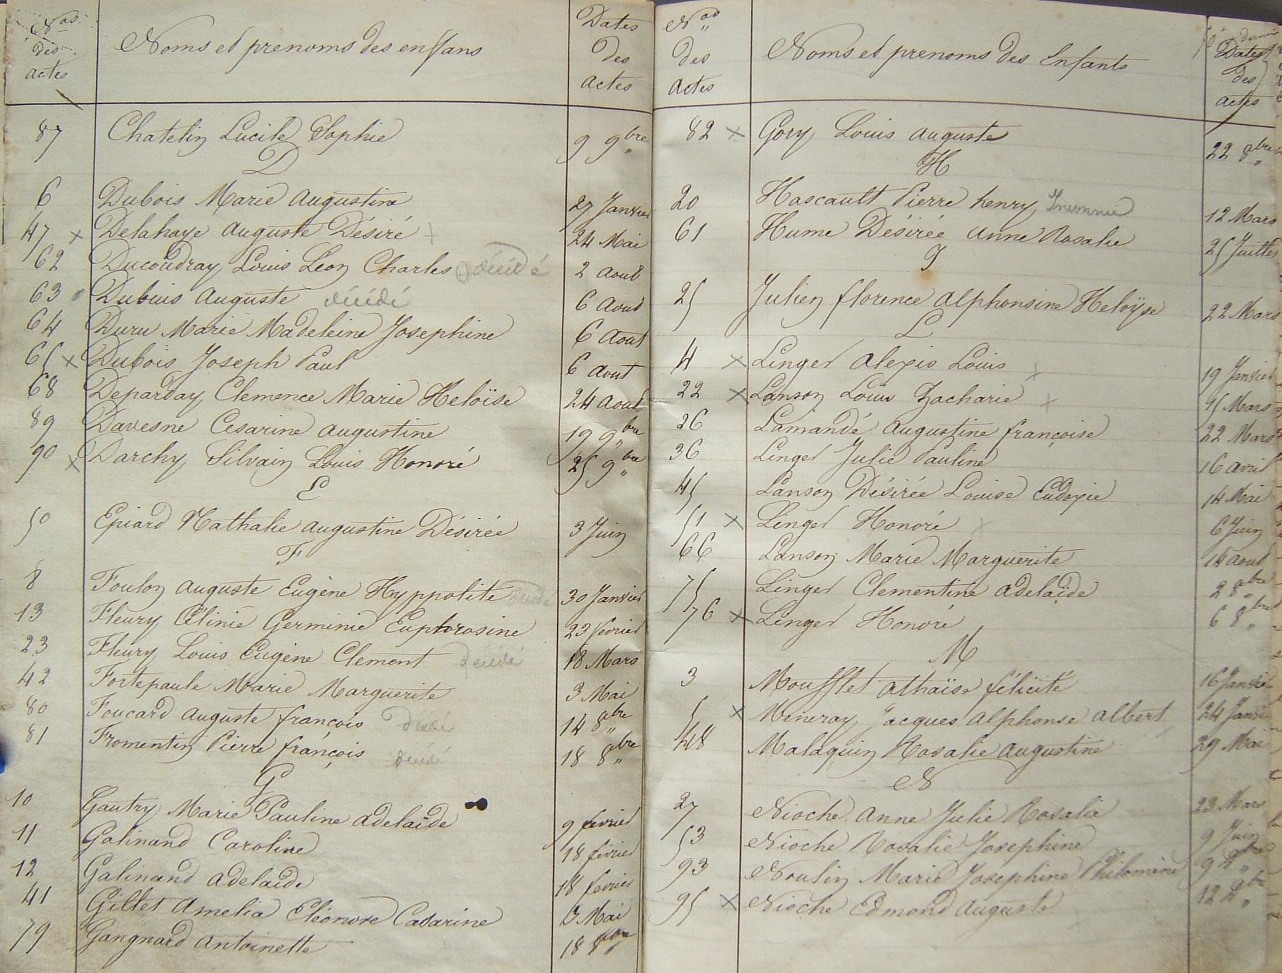 Nos des actes
Noms et prenoms des enfans
Dates des actes
87 Chatelin Lucile Sophie 9 9bre
D
6 Dubois Marie Augustine 27 Janvier
47 x Delahaye Auguste Désiré 24 Mai
62 Ducoudray Louis Léon Charles décédé 2 Aout
63 Dubuis Auguste décédé 6 Aout
64 Duru Marie Madeleine Josephine 6 Aout
65 x Dubois Joseph Paul 6 Aout
68 Deparday Clemence Marie Heloïse 24 Aout
89 Davesne Cesarine Augustine 19 9bre
90 x Darchy Silvain Louis Honoré 25 9bre
E
50 Epiard Nathalie Augustine Désirée 3 Juin
F
8 Foulon Auguste Eugène Hyppolite 30 Janvier
13 Fleury Célinie Germinie Euphrosine 23 février
23 Fleury Louis Eugène Clement décédé 18 Mars
42 Fortepaule Marie Marguerite 3 Mai
80 Foucard Auguste françois décédé 14 8bre
81 Fromentin Pierre françois décédé 18 8bre
G
10 Gautry Marie Pauline adelaïde 9 février
11 Galinand Caroline 18 février
12 Galinand adelaide 18 février
41 Gillet Amelia Eléonore Catarine Mai
79 Gangnard Antoinette 18 8bre
Nos des Actes
Noms et prenoms des Enfants
Dates des actes
82 x Gory Louis Auguste 22 8bre
H
20 Hascault Pierre henry 12 Mars
61 Hume Désirée Anne Rosalie 25 Juillet
J
25 Julien florence Alphonsine Heloÿse 22 Mars
L
4 x Linget Alexis Louis 19 Janvier
22 x Lanson Louis Zacharie 15 Mars
26 Lamandé Augustine francoise 22 Mars
36 Linget Julie Pauline 16 avril
45 Lanson Désirée Louise Eudoxie 14 Mai
51 x Linget Honoré 6 Juin
66 Lanson Marie Marguerite 14 Aout
75 Linget Clementine adelaïde 2 8bre
76 x Linget Honoré 6 8bre
M
3 Moufflet Athaïse félicité 16 Janvier
5 x Mineray Jacques Alphonse Albert 24 Janvier
48 Malaquin Rosalie Augustine 29 Mai
N
27 Nioche Anne Julie Rosalie 23 Mars
53 Nioche Rosalie Josephine 9 Juin
93 Noulin Marie Josephine Philomène 9
95 x Nioche Edmond Auguste 12